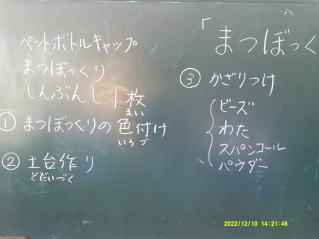 ペットボトルキャップ
まつぼっくり
しんぶんし1枚
まい
①まつぼっくりの色付け
いろづ
②土台作り
どだいづく
「まつぼっく
③かざりつけ
ビーズ
わた
スパンコール
パウダー
2022/12/10 14:21:46